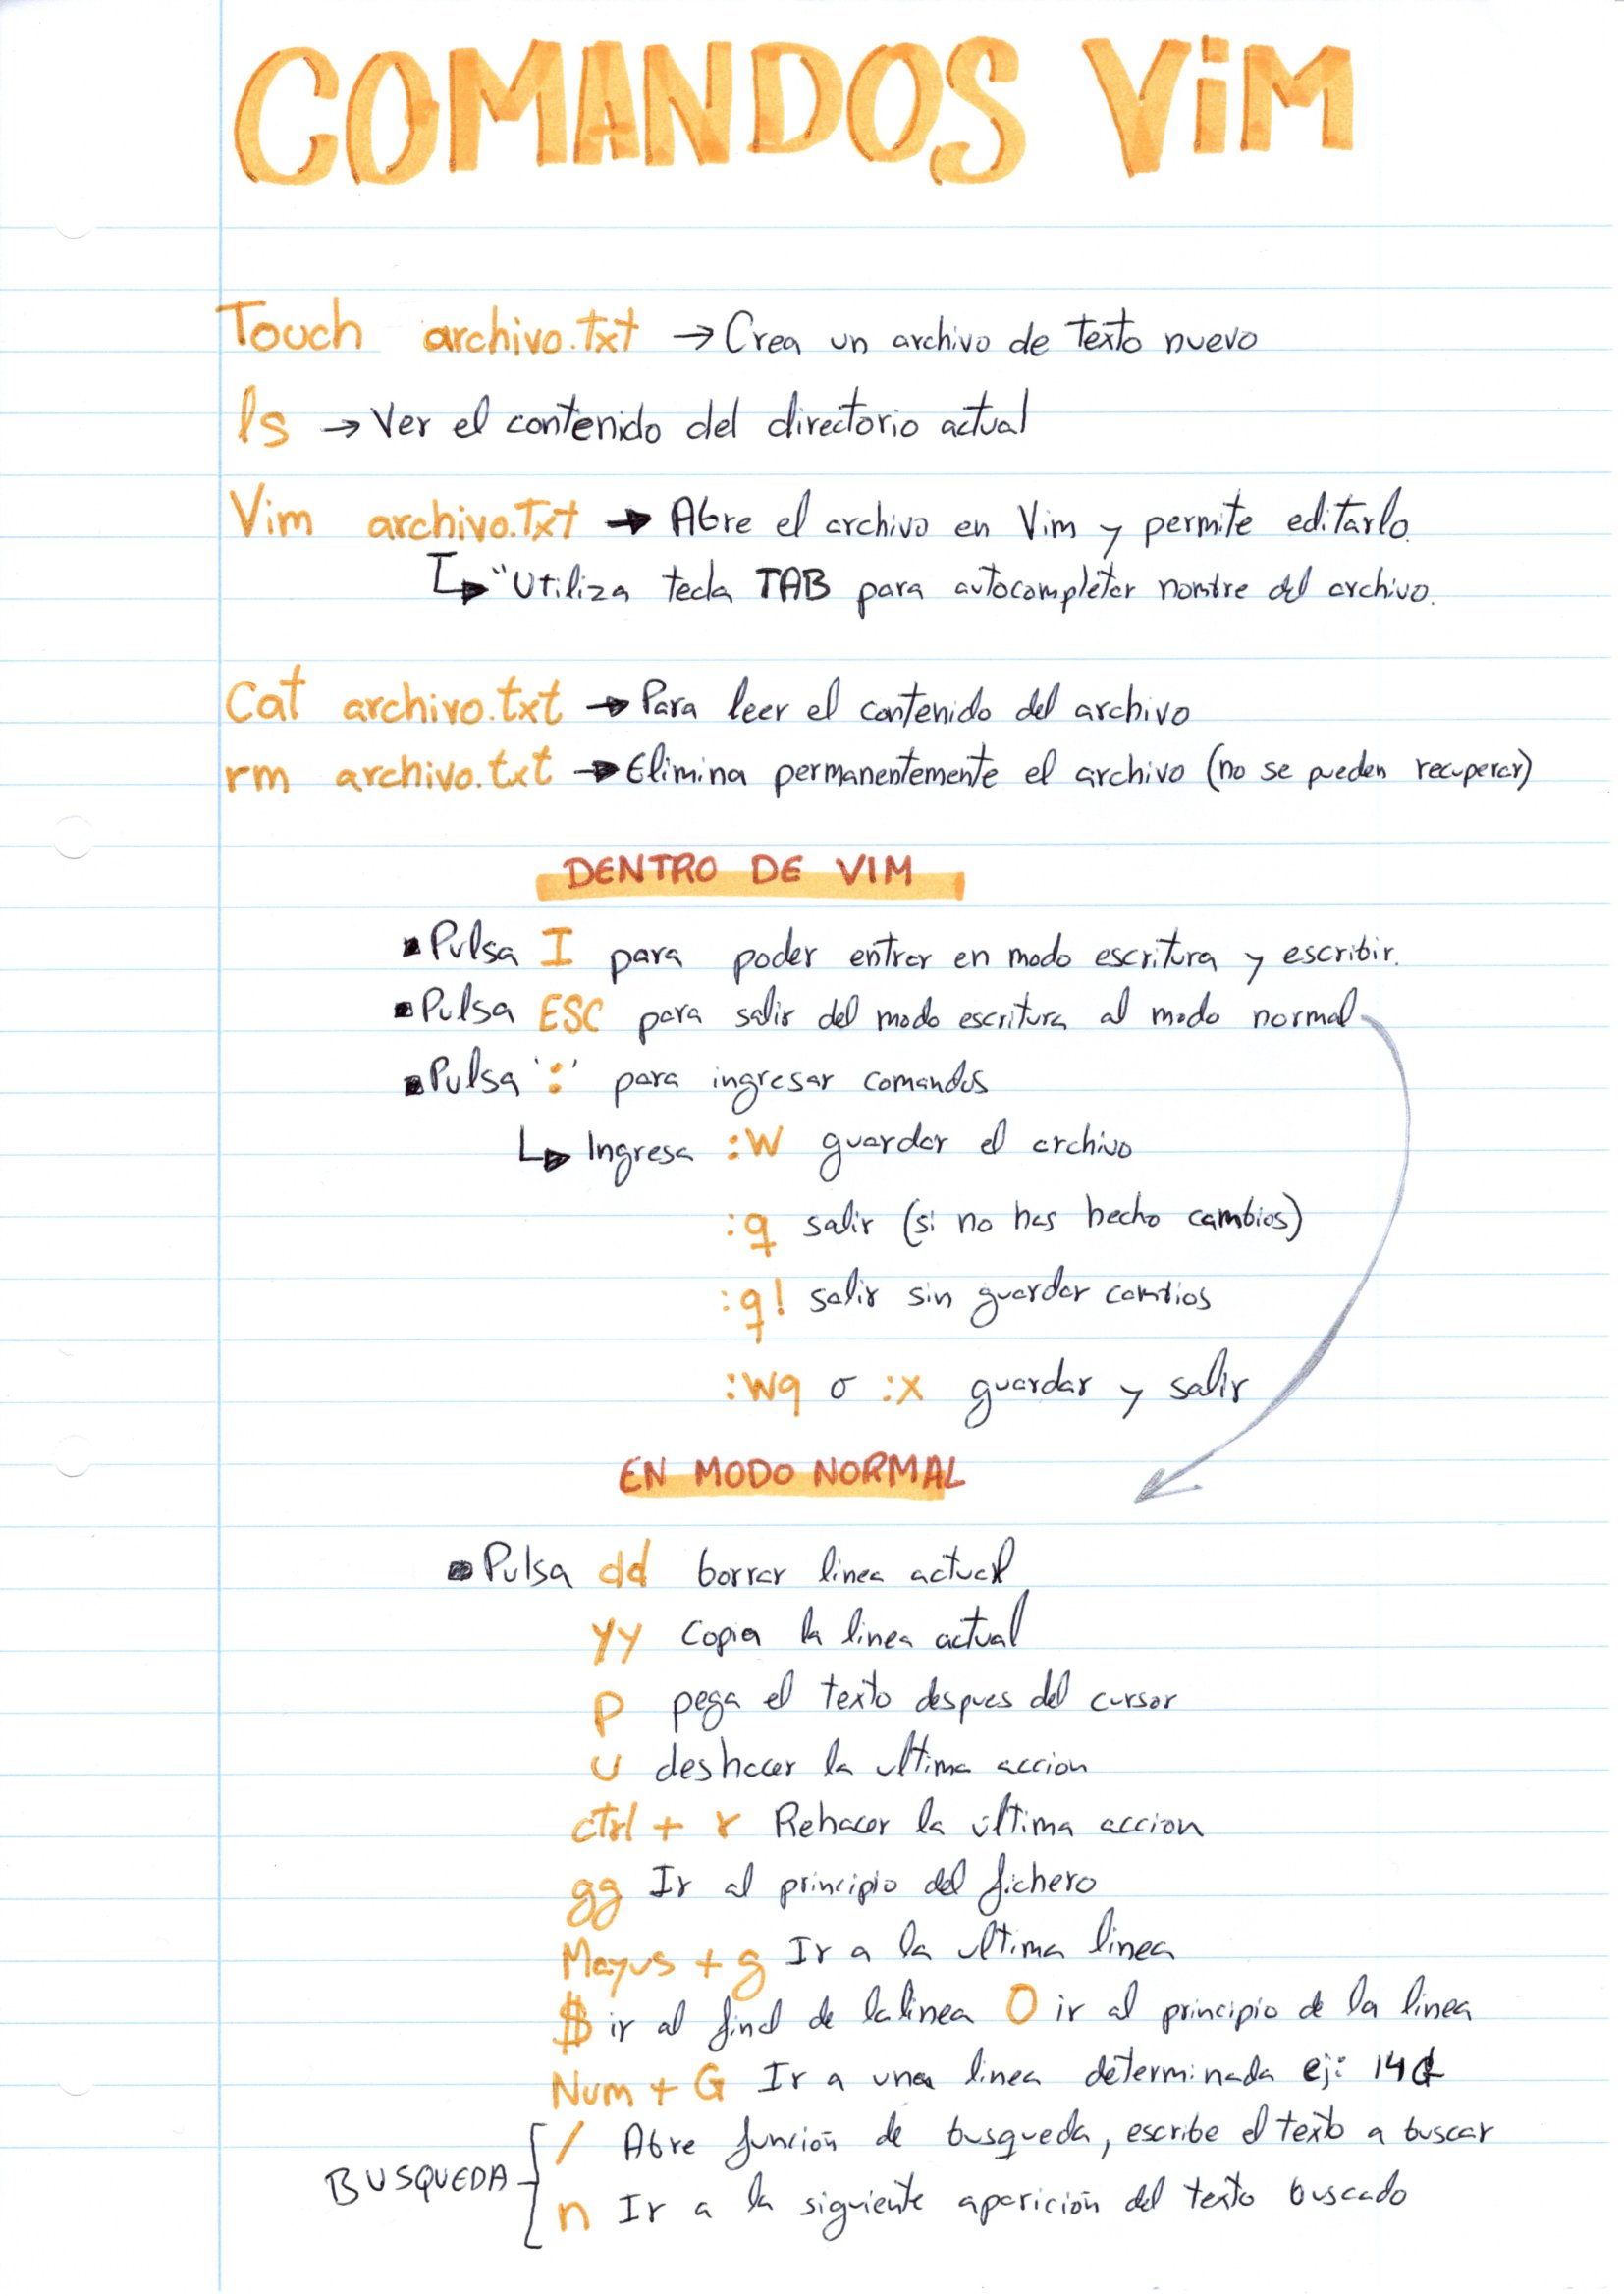 COMANDOS ViM
Touch archivo.txt → Crea un archivo de texto nuevo
ls → Ver el contenido del directorio actual
Vim archivo.Txt → Abre el archivo en Vim y permite editarlo.
↳ "Utiliza tecla TAB para autocompletar nombre del archivo.
Cat archivo.txt → Para leer el contenido del archivo
rm archivo.txt → Elimina permanentemente el archivo (no se pueden recuperar)
DENTRO DE VIM
▪ Pulsa I para poder entrar en modo escritura y escribir.
▪ Pulsa ESC para salir del modo escritura al modo normal
▪ Pulsa ':' para ingresar comandos
↳ Ingresa :W guardar el archivo
:q salir (si no has hecho cambios)
:q! salir sin guardar cambios
:Wq o :x guardar y salir
EN MODO NORMAL
▪ Pulsa dd borrar linea actual
YY Copia la linea actual
P pega el texto despues del cursor
U deshacer la ultima accion
ctrl + r Rehacer la última accion
gg Ir al principio del fichero
Mayus + g Ir a la ultima linea
$ ir al final de la linea 0 ir al principio de la linea
Num + G Ir a una linea determinada ej: 14G
BUSQUEDA
/ Abre función de busqueda, escribe el texto a buscar
n Ir a la siguiente aparición del texto buscado